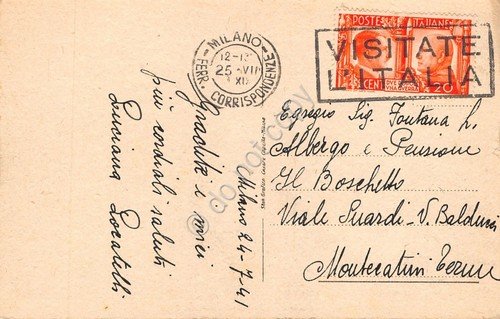 MILANO
12-13
25 VII
XIX
FERR. CORRISPONDENZE
POSTE ITALIANE
CENT 20
VISITATE
L'ITALIA
Milano 24-7-41
Gradite i miei
più cordiali saluti
Luciana Locatelli
Egregio Sig. Fontana L.
Albergo e Pensione
Il Boschetto
Viale Suardi - V. Balduin
Montecatini Terme
do not copy